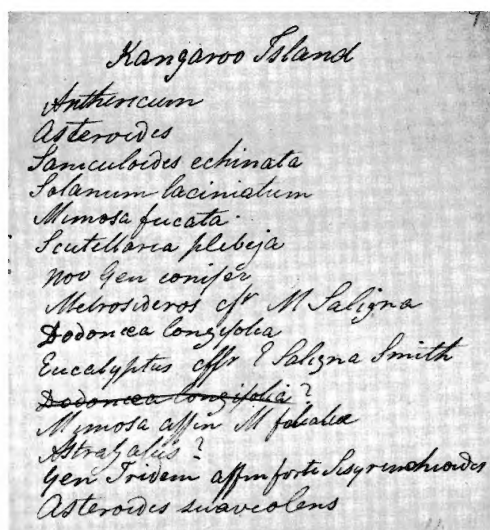 Kangaroo Island
Anthericum
Asteroides
Saniculoides echinata
Solanum laciniatum
Mimosa fucata
Scutellaria plebeja
nov Gen conifer
Metrosideros cffr M Saligna
Dodonœa longifolia
Eucalyptus cffr E Saligna Smith
Dodonœa longifolia ?
Mimosa affin M
Astragalus ?
Gen Tridem affin forte Sisyrinchioides
Asteroides suaveolens